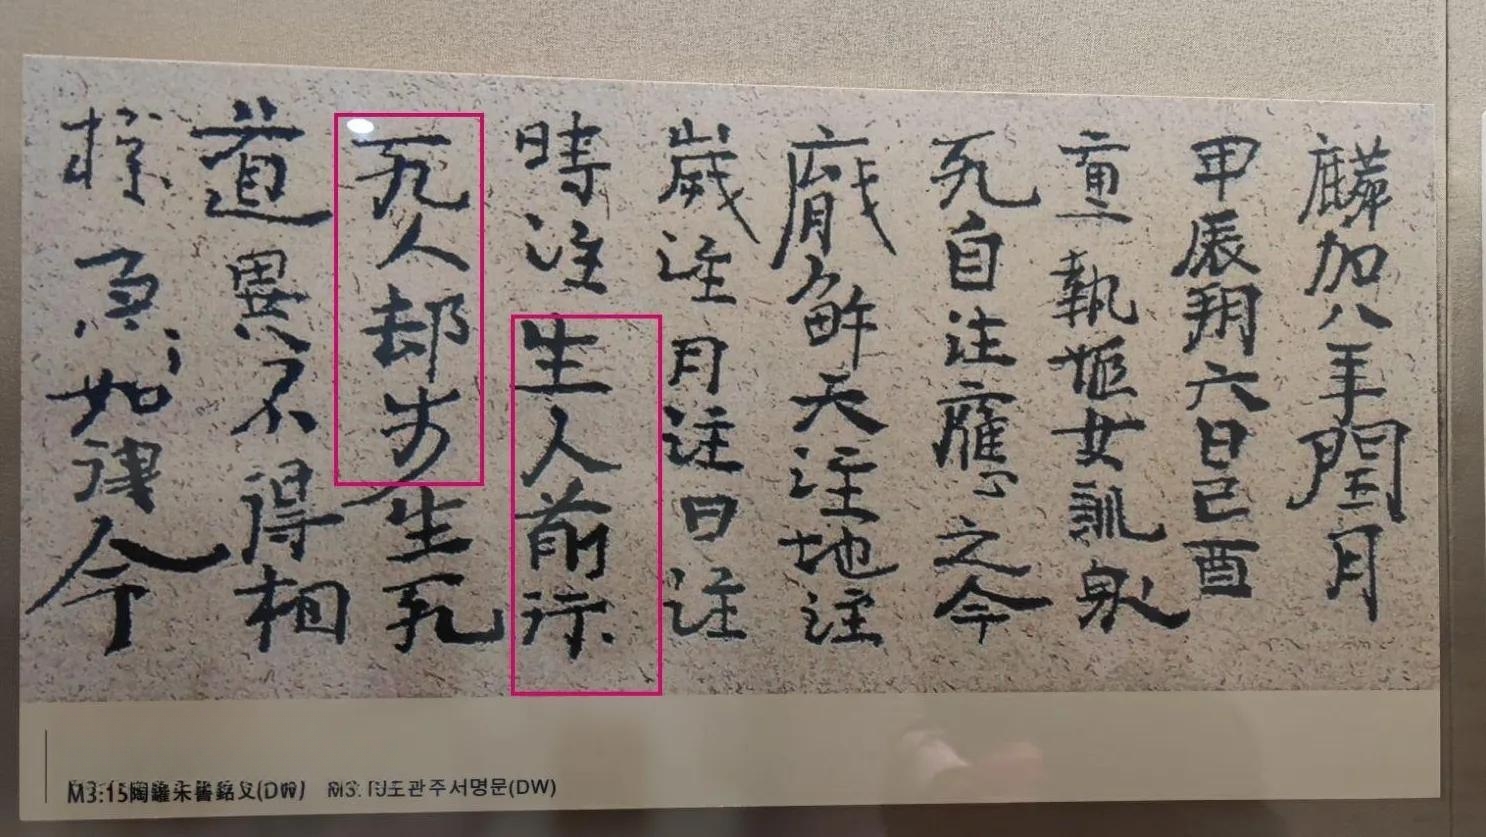 麟加八年閏月
甲辰朔六日己酉
直執姬女訓泉
死自注應之今
厭解天注地注
歲注月注日注
時注生人前行
死人却步生死
道異不得相
撞急〻如律令
M3:15陶罐朱書銘文(DW) M3:15도관주서명문(DW)